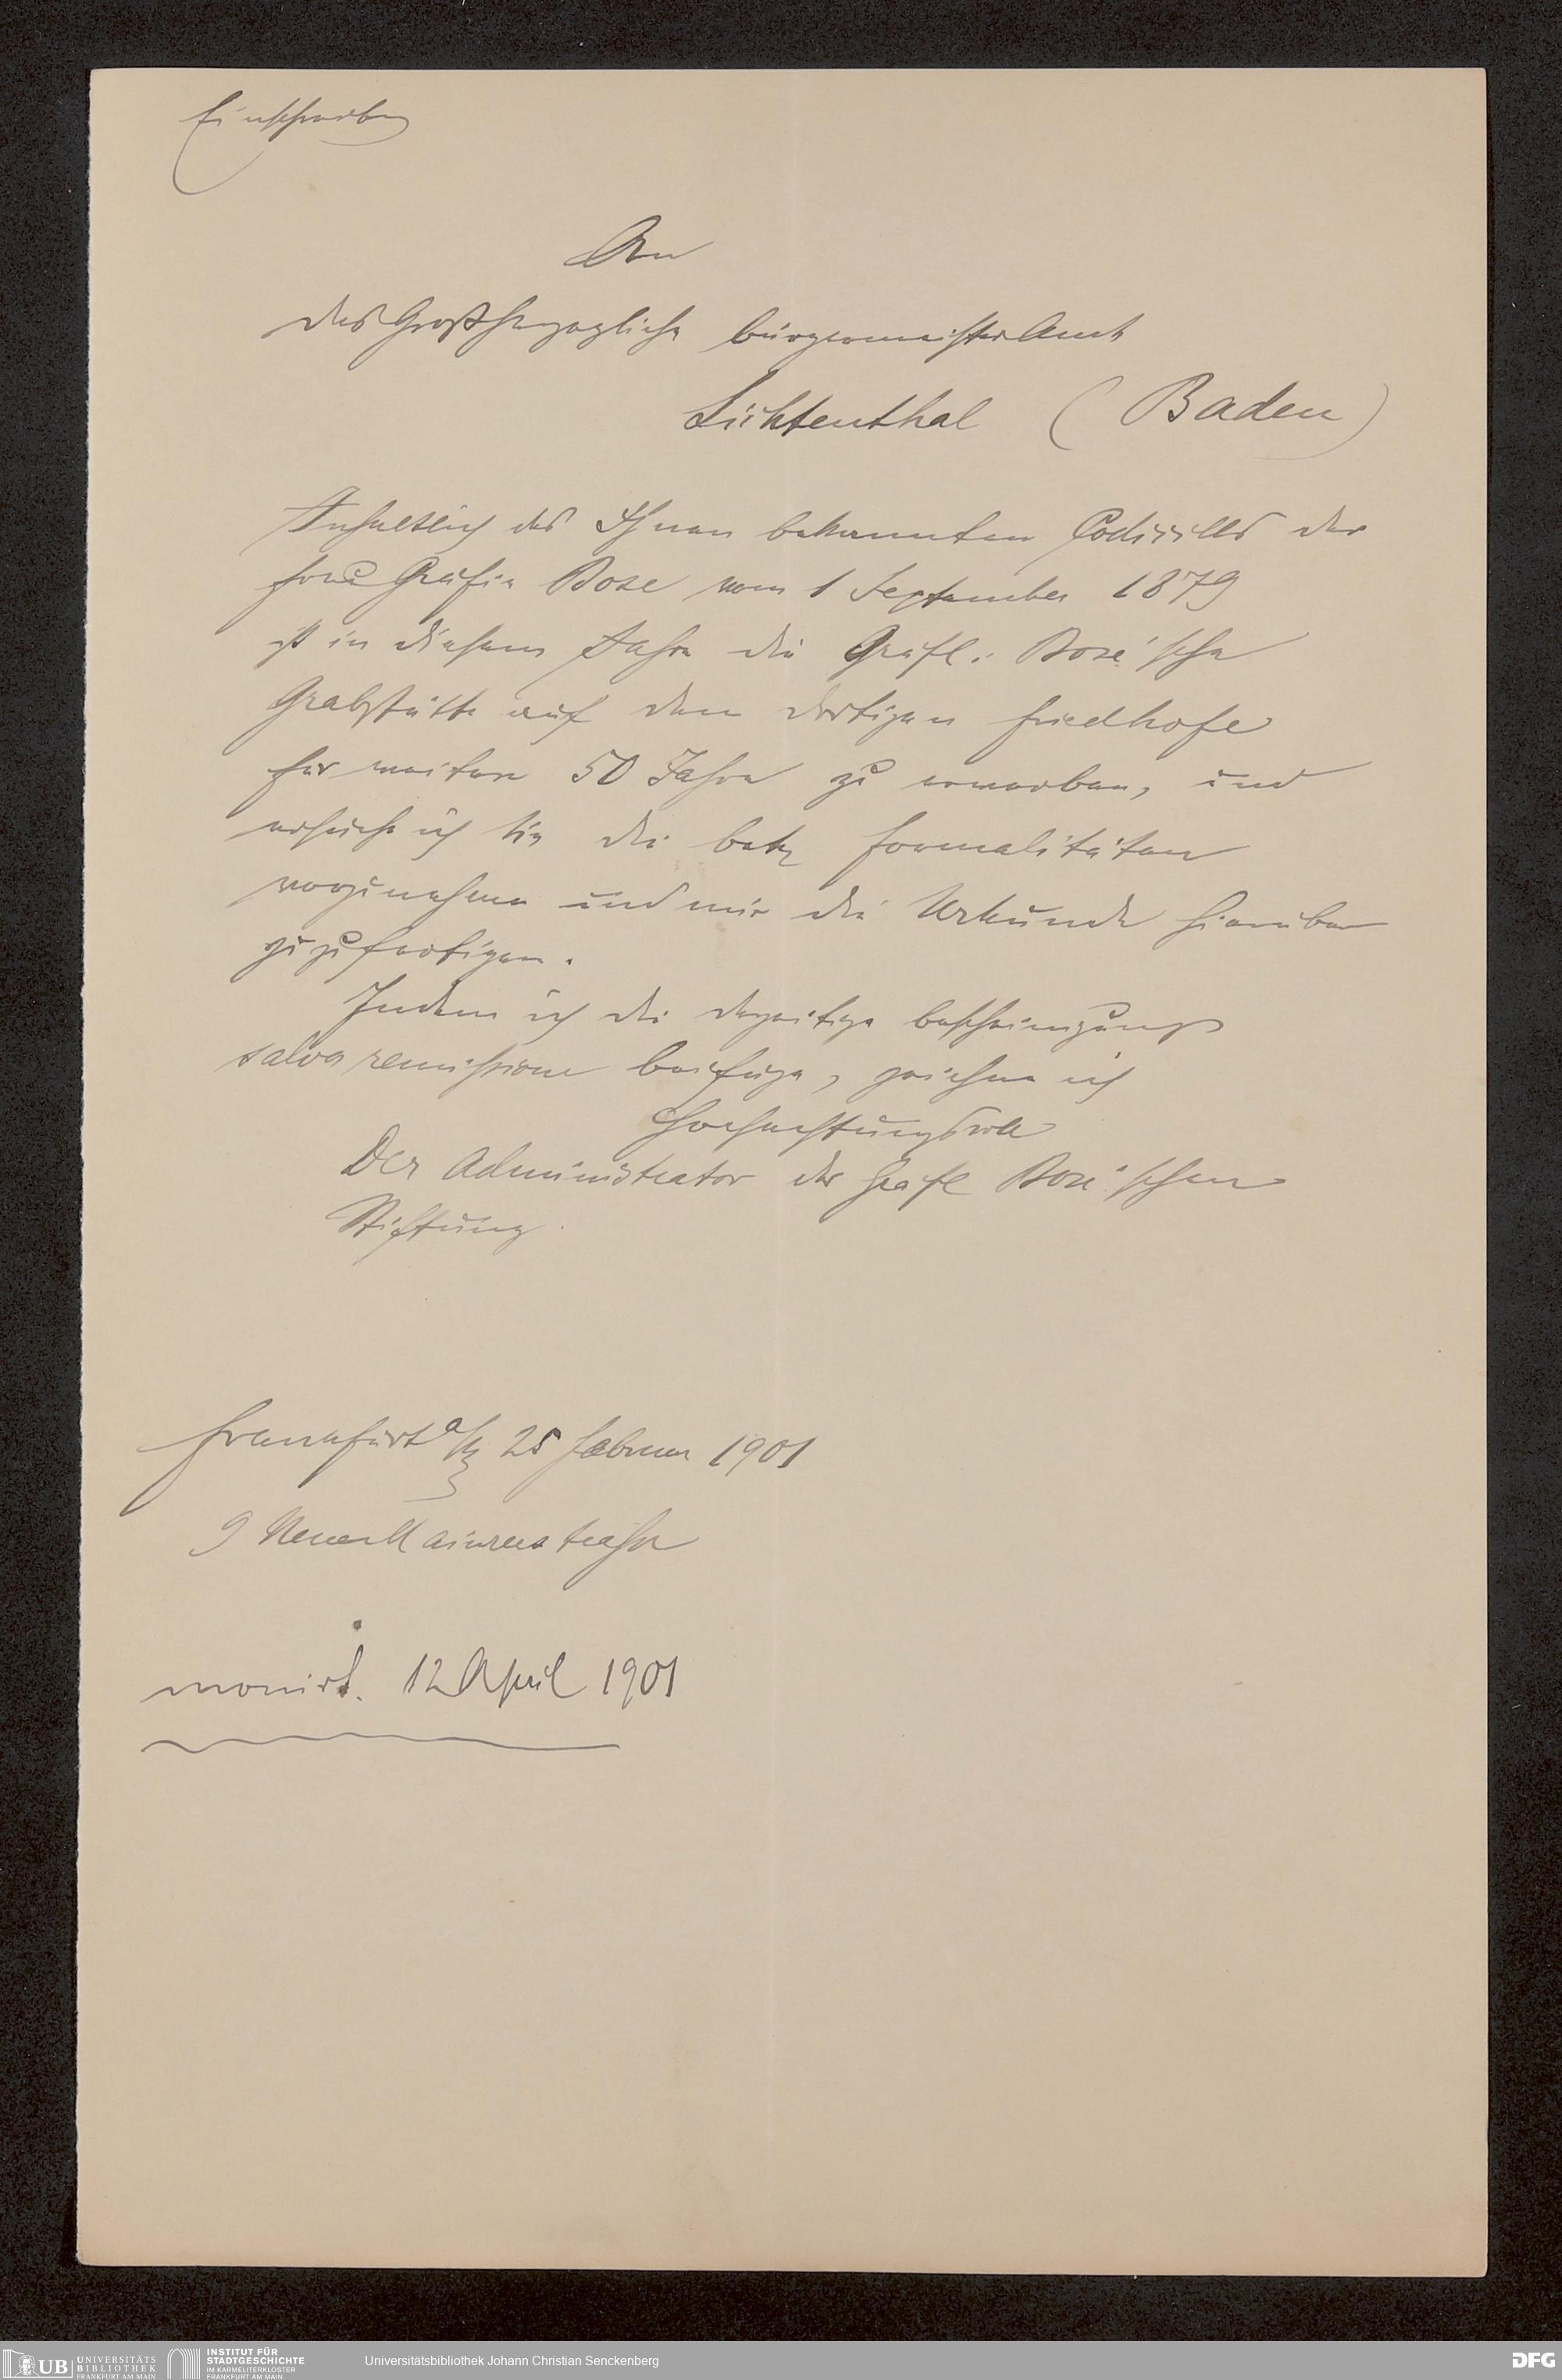 Einschreiben
An
das Großherzogliche Bürgermeister Amt
Lichtenthal (Baden)
Inhaltlich des Ihnen bekannten Codicills der
Frau Gräfin Bose vom 1 September 1879
ist in diesem Jahre die Gräfl. Bose'sche
Grabstätte auf dem dortigen Friedhofe
für weitere 50 Jahre zu erwerben, und
ersuche ich Sie die betr Formalitäten
vorzunehmen und mir die Urkunde hierüber
zuzufertigen.
Indem ich die derzeitige Bescheinigung
salva remissione beifüge, zeichne ich
Hochachtungsvoll
Der Administrator der Gräfl Bose'schen
Stiftung.
Frankfurt a/M 25 Februar 1901
9 Neue Mainzerstraße
monirt. 12 April 1901
UB UNIVERSITÄTS
BIBLIOTHEK
FRANKFURT AM MAIN
INSTITUT FÜR
STADTGESCHICHTE
IM KARMELITERKLOSTER
FRANKFURT AM MAIN
Universitätsbibliothek Johann Christian Senckenberg
DFG